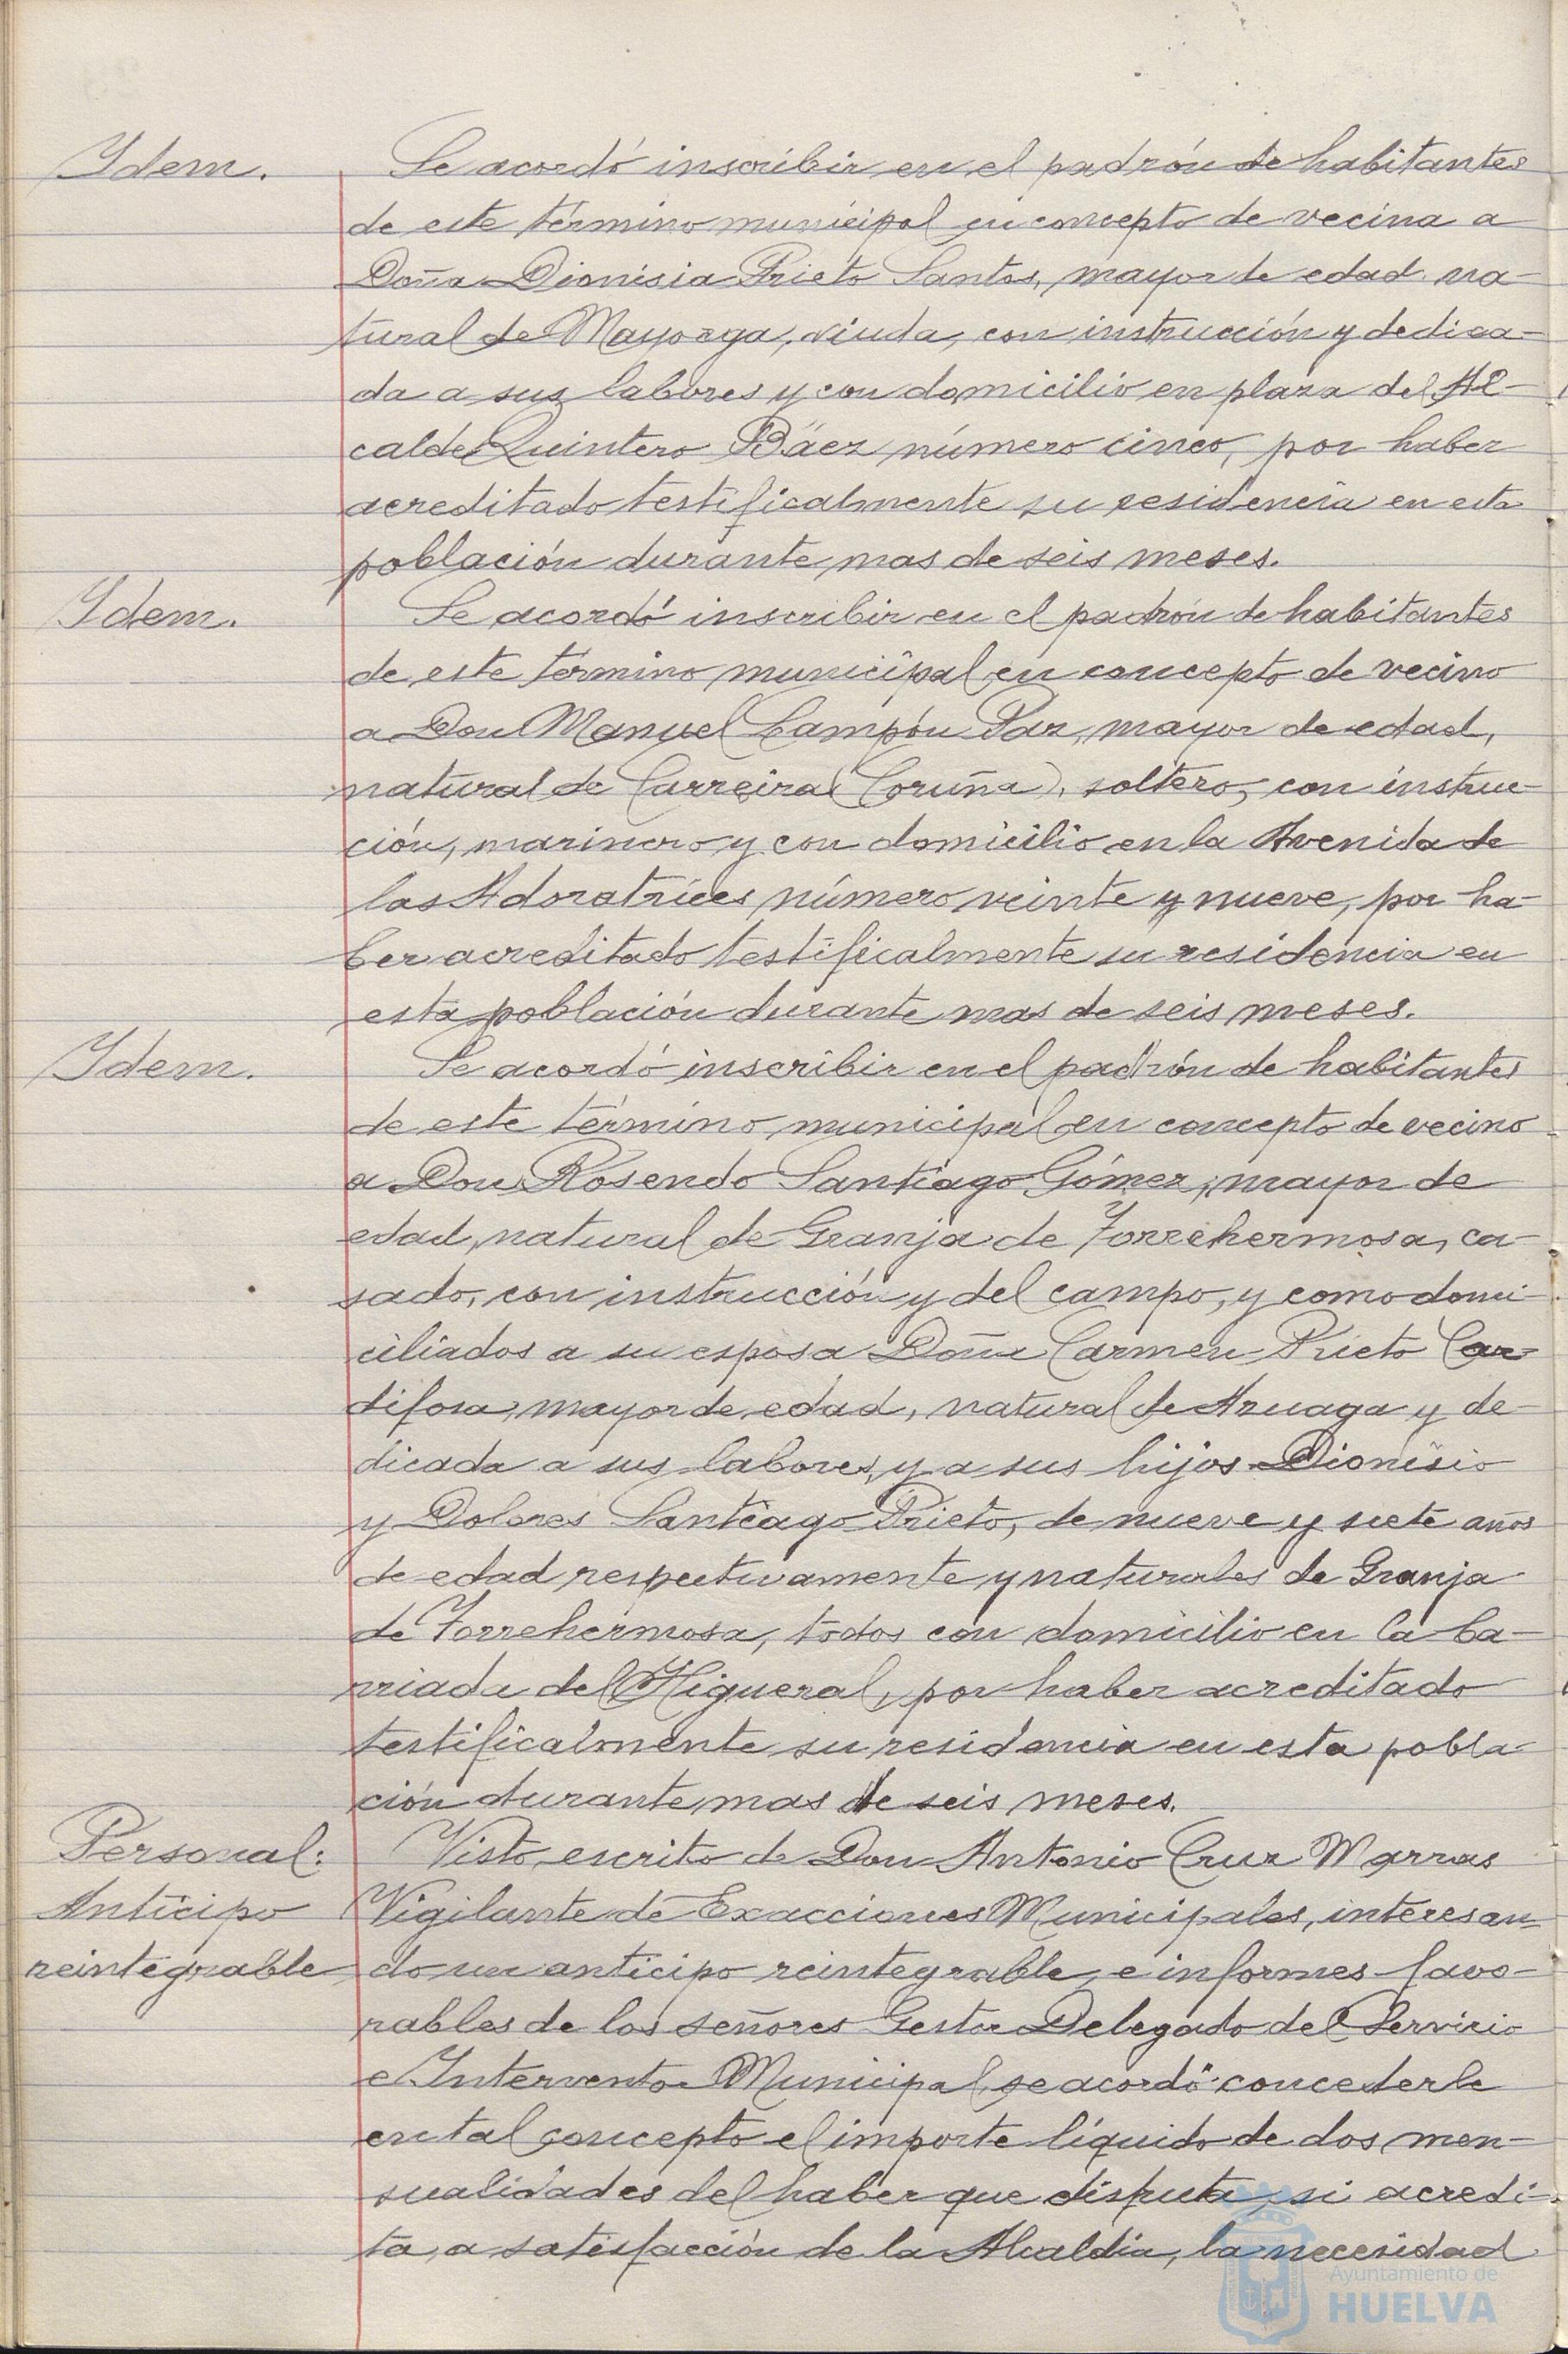 Idem.
Se acordó inscribir en el padrón de habitantes
de este término municipal en concepto de vecina a
Doña Dionisia Prieto Santos, mayor de edad, na-
tural de Mayorga, viuda, con instrucción y dedica-
da a sus labores y con domicilio en plaza del Al-
calde Quintero Báez número cinco, por haber
acreditado testificalmente su residencia en esta
población durante mas de seis meses.
Idem.
Se acordó inscribir en el padrón de habitantes
de este término municipal en concepto de vecino
a Don Manuel Campón Paz, mayor de edad,
natural de Carreira (Coruña), soltero, con instruc-
ción, marinero y con domicilio en la Avenida de
las Adoratrices número veinte y nueve, por ha-
ber acreditado testificalmente su residencia en
esta población durante mas de seis meses.
Idem.
Se acordó inscribir en el padrón de habitantes
de este término municipal en concepto de vecino
a Don Rosendo Santiago Gómez, mayor de
edad, natural de Granja de Torrehermosa, ca-
sado, con instrucción y del campo, y como domi-
ciliados a su esposa Doña Carmen Prieto Car-
difosa, mayor de edad, natural de Azuaga y de-
dicada a sus labores, y a sus hijos Dionisio
y Dolores Santiago Prieto, de nueve y siete años
de edad respectivamente y naturales de Granja
de Torrehermosa, todos con domicilio en la ba-
rriada del Higueral, por haber acreditado
testificalmente su residencia en esta pobla-
ción durante mas de seis meses.
Personal:
Anticipo
reintegrable
Visto escrito de Don Antonio Cruz Marras
Vigilante de Exacciones Municipales, interesan-
do un anticipo reintegrable, e informes favo-
rables de los señores Gestor Delegado del Servicio
e Interventor Municipal, se acordó concederle
en tal concepto el importe líquido de dos men-
sualidades del haber que disfruta, si acredi-
ta, a satisfacción de la Alcaldía, la necesidad
Ayuntamiento de
HUELVA